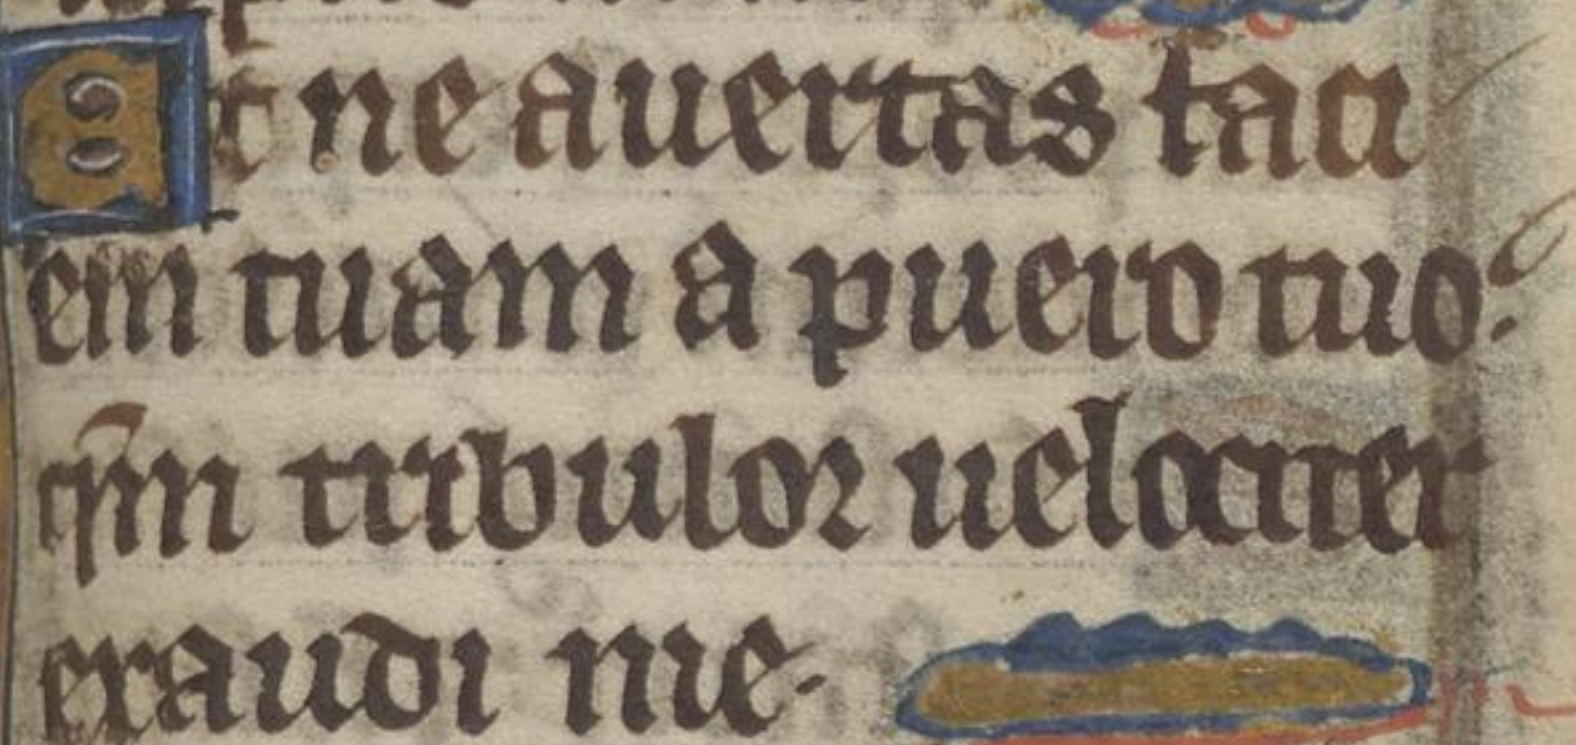 Et ne auertas faci
em tuam a puero tuo.
qm̄ tribulor uelociter
exaudi me.